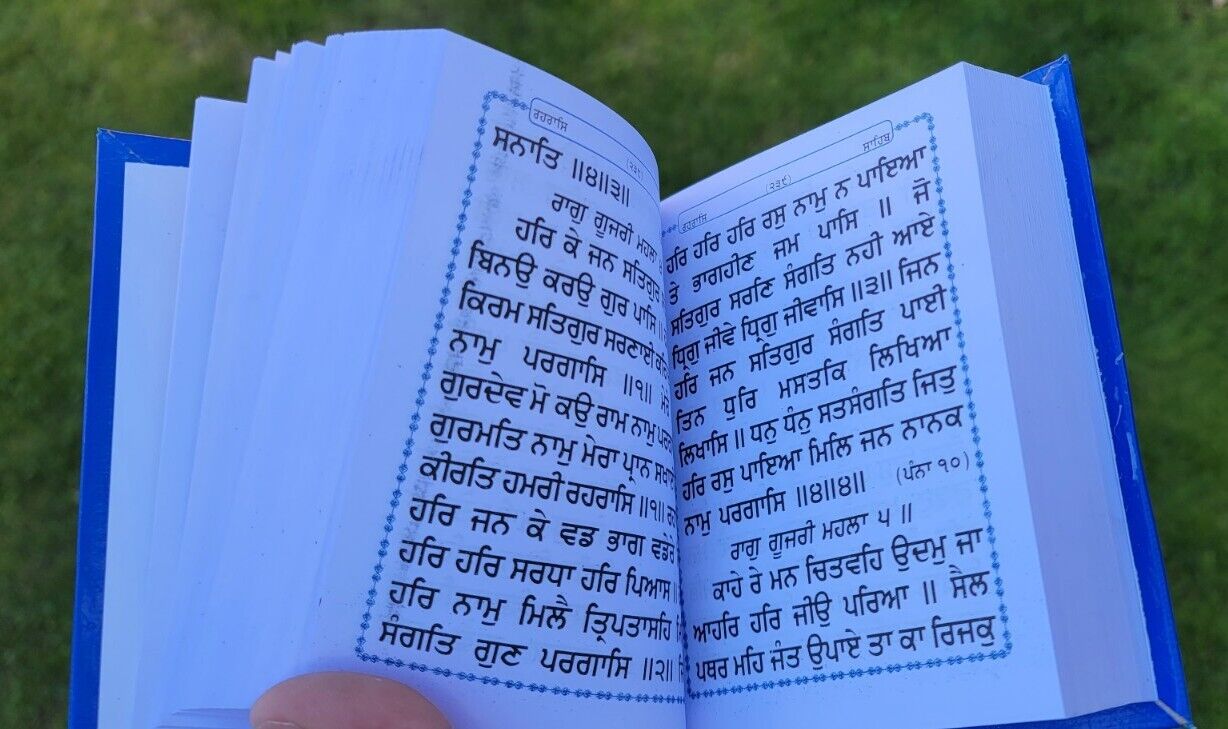 ਰਹਰਾਸਿ
ਸਨਾਤਿ ॥੪॥੩॥
ਰਾਗੁ ਗੂਜਰੀ ਮਹਲਾ
ਹਰਿ ਕੇ ਜਨ ਸਤਿਗੁਰ
ਬਿਨਉ ਕਰਉ ਗੁਰ ਪਾਸਿ
ਕਿਰਮ ਸਤਿਗੁਰ ਸਰਣਾਈ
ਨਾਮੁ ਪਰਗਾਸਿ ॥੧॥ ਮੇਰੇ
ਗੁਰਦੇਵ ਮੋ ਕਉ ਰਾਮ ਨਾਮੁ
ਗੁਰਮਤਿ ਨਾਮੁ ਮੇਰਾ ਪ੍ਰਾਨ
ਕੀਰਤਿ ਹਮਰੀ ਰਹਰਾਸਿ ॥੧॥
ਹਰਿ ਜਨ ਕੇ ਵਡ ਭਾਗ ਵਡੇਰੇ
ਹਰਿ ਹਰਿ ਸਰਧਾ ਹਰਿ ਪਿਆਸ
ਹਰਿ ਨਾਮੁ ਮਿਲੈ ਤ੍ਰਿਪਤਾਸਹਿ
ਸੰਗਤਿ ਗੁਣ ਪਰਗਾਸਿ ॥੨॥
ਰਹਰਾਸਿ (੨੩੯) ਸਾਹਿਬ
ਹਰਿ ਹਰਿ ਹਰਿ ਰਸੁ ਨਾਮੁ ਨ ਪਾਇਆ
ਤੇ ਭਾਗਹੀਣ ਜਮ ਪਾਸਿ ॥ ਜੋ
ਸਤਿਗੁਰ ਸਰਣਿ ਸੰਗਤਿ ਨਹੀ ਆਏ
ਧ੍ਰਿਗੁ ਜੀਵੇ ਧ੍ਰਿਗੁ ਜੀਵਾਸਿ ॥੩॥ ਜਿਨ
ਹਰਿ ਜਨ ਸਤਿਗੁਰ ਸੰਗਤਿ ਪਾਈ
ਤਿਨ ਧੁਰਿ ਮਸਤਕਿ ਲਿਖਿਆ
ਲਿਖਾਸਿ ॥ ਧਨੁ ਧੰਨੁ ਸਤਸੰਗਤਿ ਜਿਤੁ
ਹਰਿ ਰਸੁ ਪਾਇਆ ਮਿਲਿ ਜਨ ਨਾਨਕ
ਨਾਮੁ ਪਰਗਾਸਿ ॥੪॥੪॥ (ਪੰਨਾ ੧੦)
ਰਾਗੁ ਗੂਜਰੀ ਮਹਲਾ ੫ ॥
ਕਾਹੇ ਰੇ ਮਨ ਚਿਤਵਹਿ ਉਦਮੁ ਜਾ
ਆਹਰਿ ਹਰਿ ਜੀਉ ਪਰਿਆ ॥ ਸੈਲ
ਪਥਰ ਮਹਿ ਜੰਤ ਉਪਾਏ ਤਾ ਕਾ ਰਿਜਕੁ